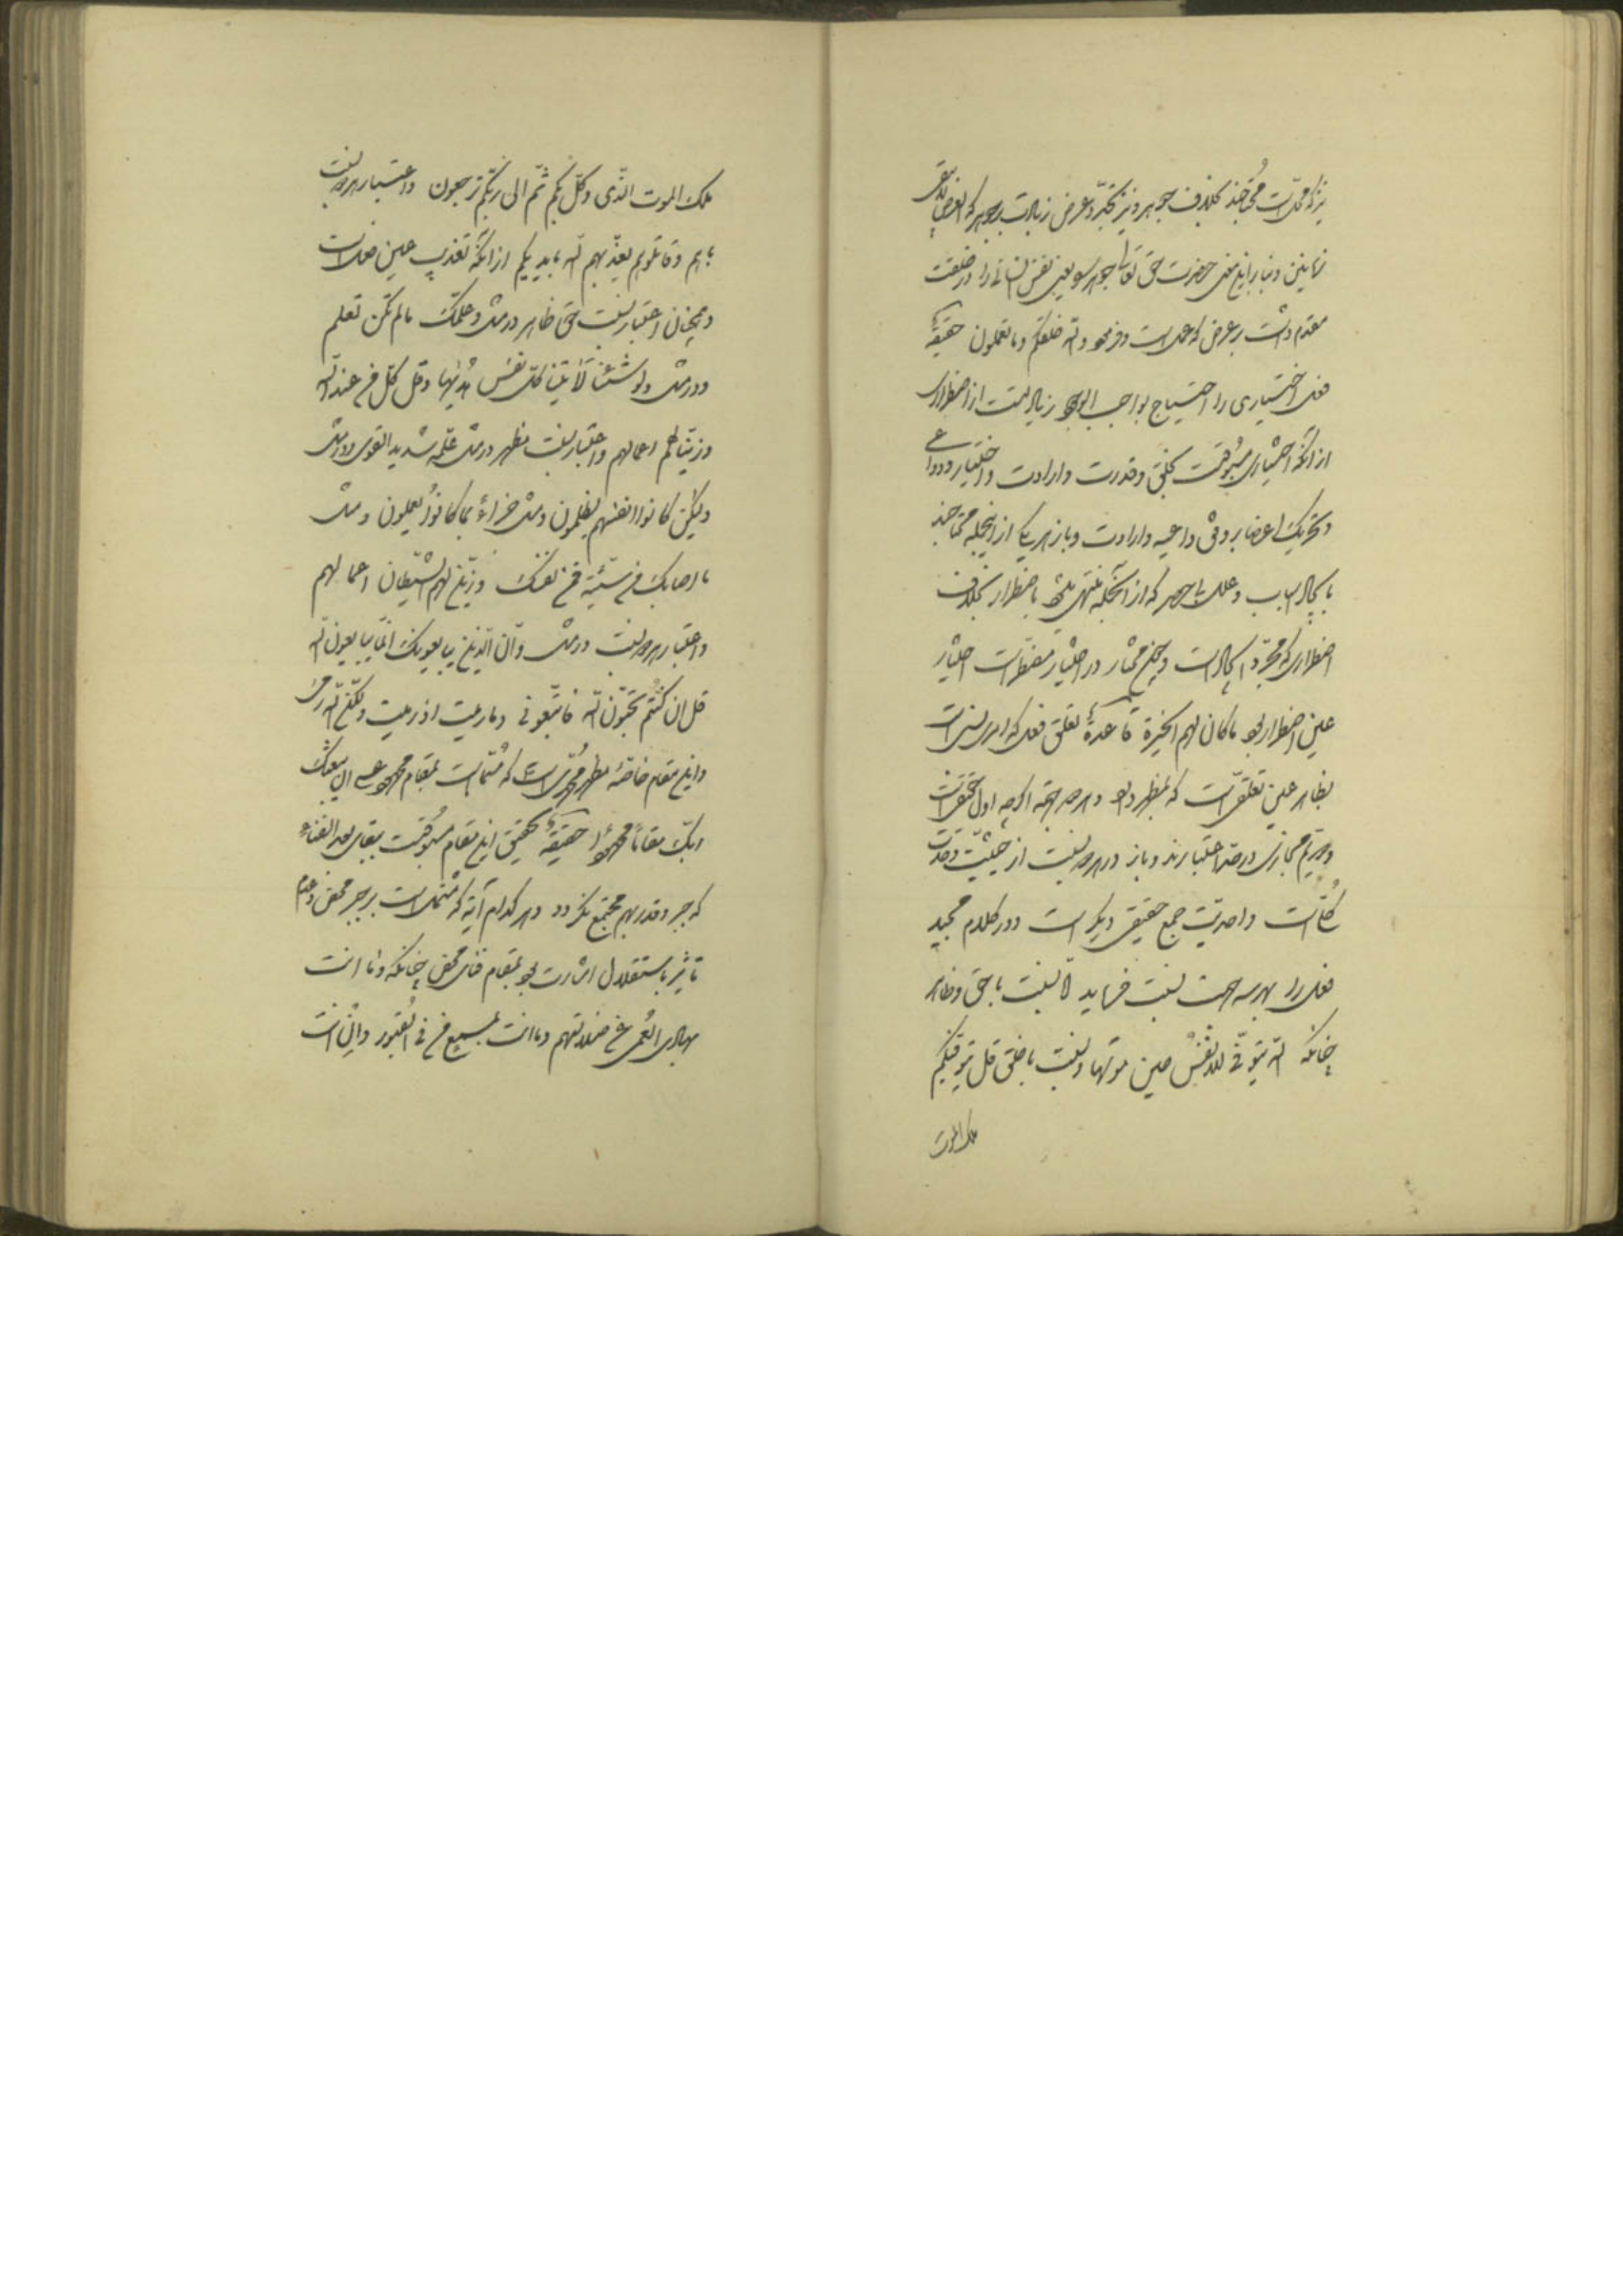 نیز که محل است محتاجند بخلاف جوهر و نیز تجدد عرض زیادست بر جوهر که العرض لایبقی
زمانین و بنابر این معنی حضرت حق تعالی جوهر یعنی نفس انسانی را در خلقت
مقدم داشت بر عرض که عمل است و فرمود والله خلقکم و ما تعملون حقیقة
فعل اختیاری را احتیاج بواجب الوجود زیاد تست از اضطراری
از آنکه اختیاری مسبوقست بخلق و قدرت و ارادت و اختیار و دواعی
و تحریک اعضا بر وفق داعیه و ارادت و باز هر یک از اینجمله محتاجند
بایجاد اسباب و علل که از آنجمله منتهی شود باضطرار بخلاف
اضطراری که مجرد ایجاد است و چون مختار در اختیار مضطر است اختیار
عین اضطرار بود ما کان لهم الخیرة قاعدة تعلق فعل که امری است
بظاهر عین تعلقی است که بمظهر دارد و هر چه اول حقیقی است
و دویم مجازی در صدد اعتبارند و باز در هر دو نسبت از حیثیت وحدت
است و احدیت جمع حقیقی دیگر است و در کلام مجید
فعل را بهر سه جهت نسبت فرماید لا نسبت با حق و ظاهر
چنانکه الله یتوفی الانفس حین موتها و نسبت با خلق قل یتوفیکم
ملک الموت
ملک الموت الذی وکل بکم ثم الی ربکم ترجعون و اعتبار هر دو نسبت
با هم و قاتلوهم یعذبهم الله بایدیکم از آنکه تعذیب عین فعل است
و همچنان اعتبار نسبت حق ظاهر در مثل و علمک ما لم تکن تعلم
و در مثل ولو شئنا لآتینا کل نفس هدیها و قل کل من عند الله
و زینا لهم اعمالهم و اعتبار نسبت مظهر در مثل علمه شدید القوی و در مثل
ولیکن کانوا انفسهم یظلمون و مثل جزاء بما کانوا یعملون و مثل
ما اصابک من سیئة فمن نفسک و زین لهم الشیطان اعمالهم
و اعتبار هر دو نسبت در مثل و ان الذین یبایعونک انما یبایعون الله
قل ان کنتم تحبون الله فاتبعونی و ما رمیت اذ رمیت ولکن الله رمی
و این مقام خاصه مظهر محمدی است که مسماست بمقام محمود عسی ان یبعثک
ربک مقاما محمودا حقیقة تحقیق این مقام مسبوقست ببقای بعد الفناء
که جبر و قدر بهم مجتمع نگردد و هر کدام آیه که مشتمل است بر جبر محض و عدم
تاثیر باستقلال اشارت بود بمقام فنای محض چنانکه و ما انت
بهادی العمی عن ضلالتهم و ما انت بمسمع من فی القبور و ان انت